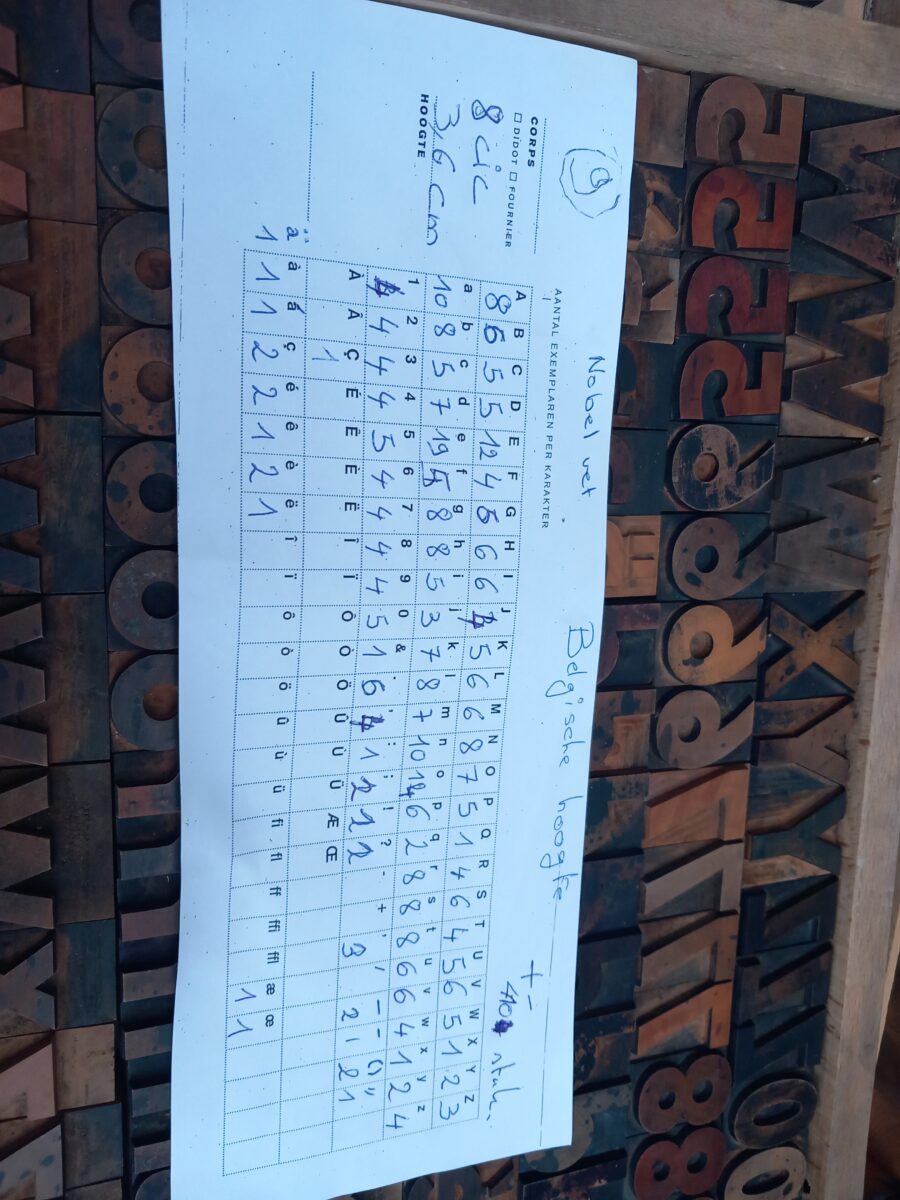 9
Nobel vet Belgische hoogte + -
CORPS
□ DIDOT □ FOURNIER
8 cic
3,6 cm
HOOGTE
AANTAL EXEMPLAREN PER KARAKTER
A B C D E F G H I J K L M N O P Q R S T U V W X Y Z
8 6 5 5 12 4 5 6 6 4 5 6 6 8 7 5 1 4 6 4 5 6 5 1 2 3
a b c d e f g h i j k l m n o p q r s t u v w x y z
10 8 5 7 19 5 8 8 5 3 7 8 7 10 14 6 2 8 8 8 6 6 4 1 2 4
1 2 3 4 5 6 7 8 9 0 & . , : ; ! ? - + ' , – – () „
4 4 4 4 5 4 4 4 4 5 1 6 4 1 2 2 2 3 2 1 2 1
À Â Ç É Ê È Ë Î Ï Ô Ò Ö Û Ù Ü Æ Œ
1
ä à á ç é ê è ë î ï ô ò ö û ù ü fi fl ff ffi ffl æ œ
1 1 1 2 2 1 2 1 1 1